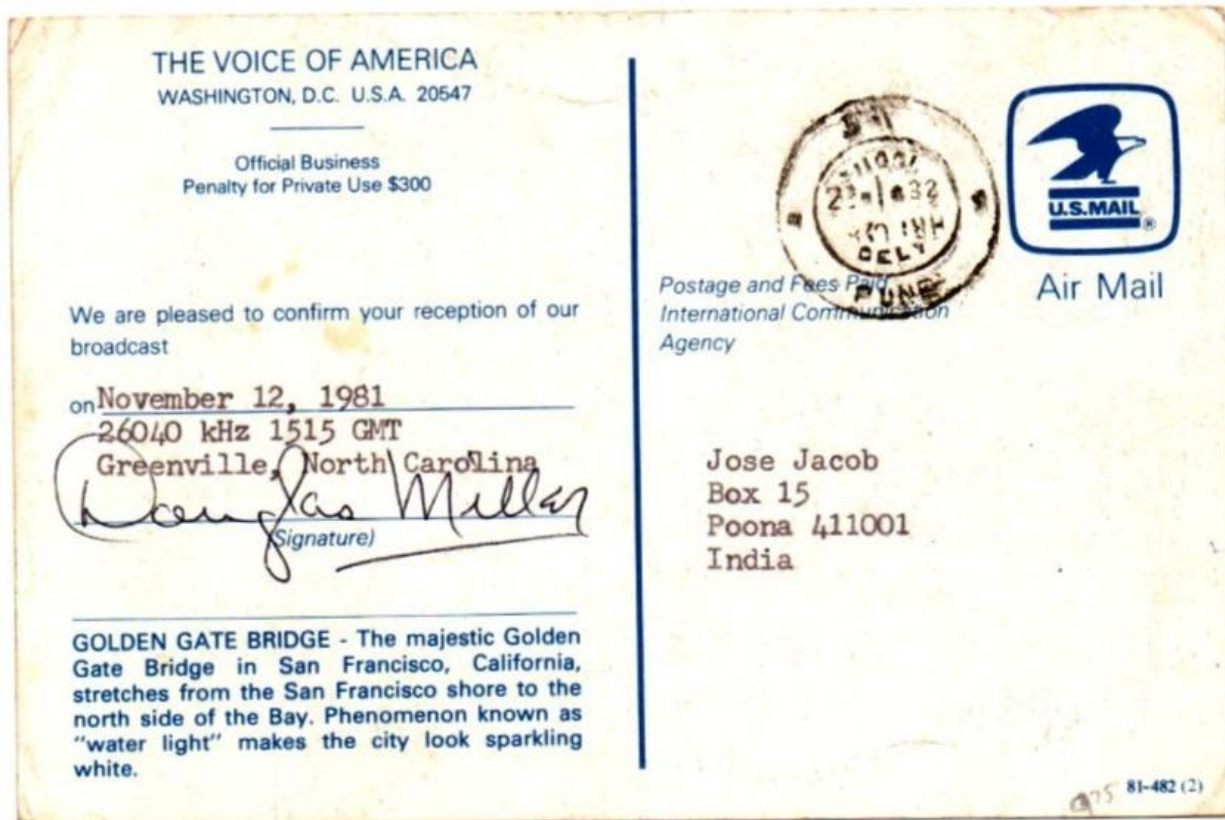 THE VOICE OF AMERICA
WASHINGTON, D.C. U.S.A. 20547
Official Business
Penalty for Private Use $300
We are pleased to confirm your reception of our
broadcast
on November 12, 1981
26040 kHz 1515 GMT
Greenville, North Carolina
Douglas Miller
(Signature)
GOLDEN GATE BRIDGE - The majestic Golden
Gate Bridge in San Francisco, California,
stretches from the San Francisco shore to the
north side of the Bay. Phenomenon known as
"water light" makes the city look sparkling
white.
DELY
PUNE
U.S.MAIL®
Air Mail
Postage and Fees Paid
International Communication
Agency
Jose Jacob
Box 15
Poona 411001
India
81-482 (2)